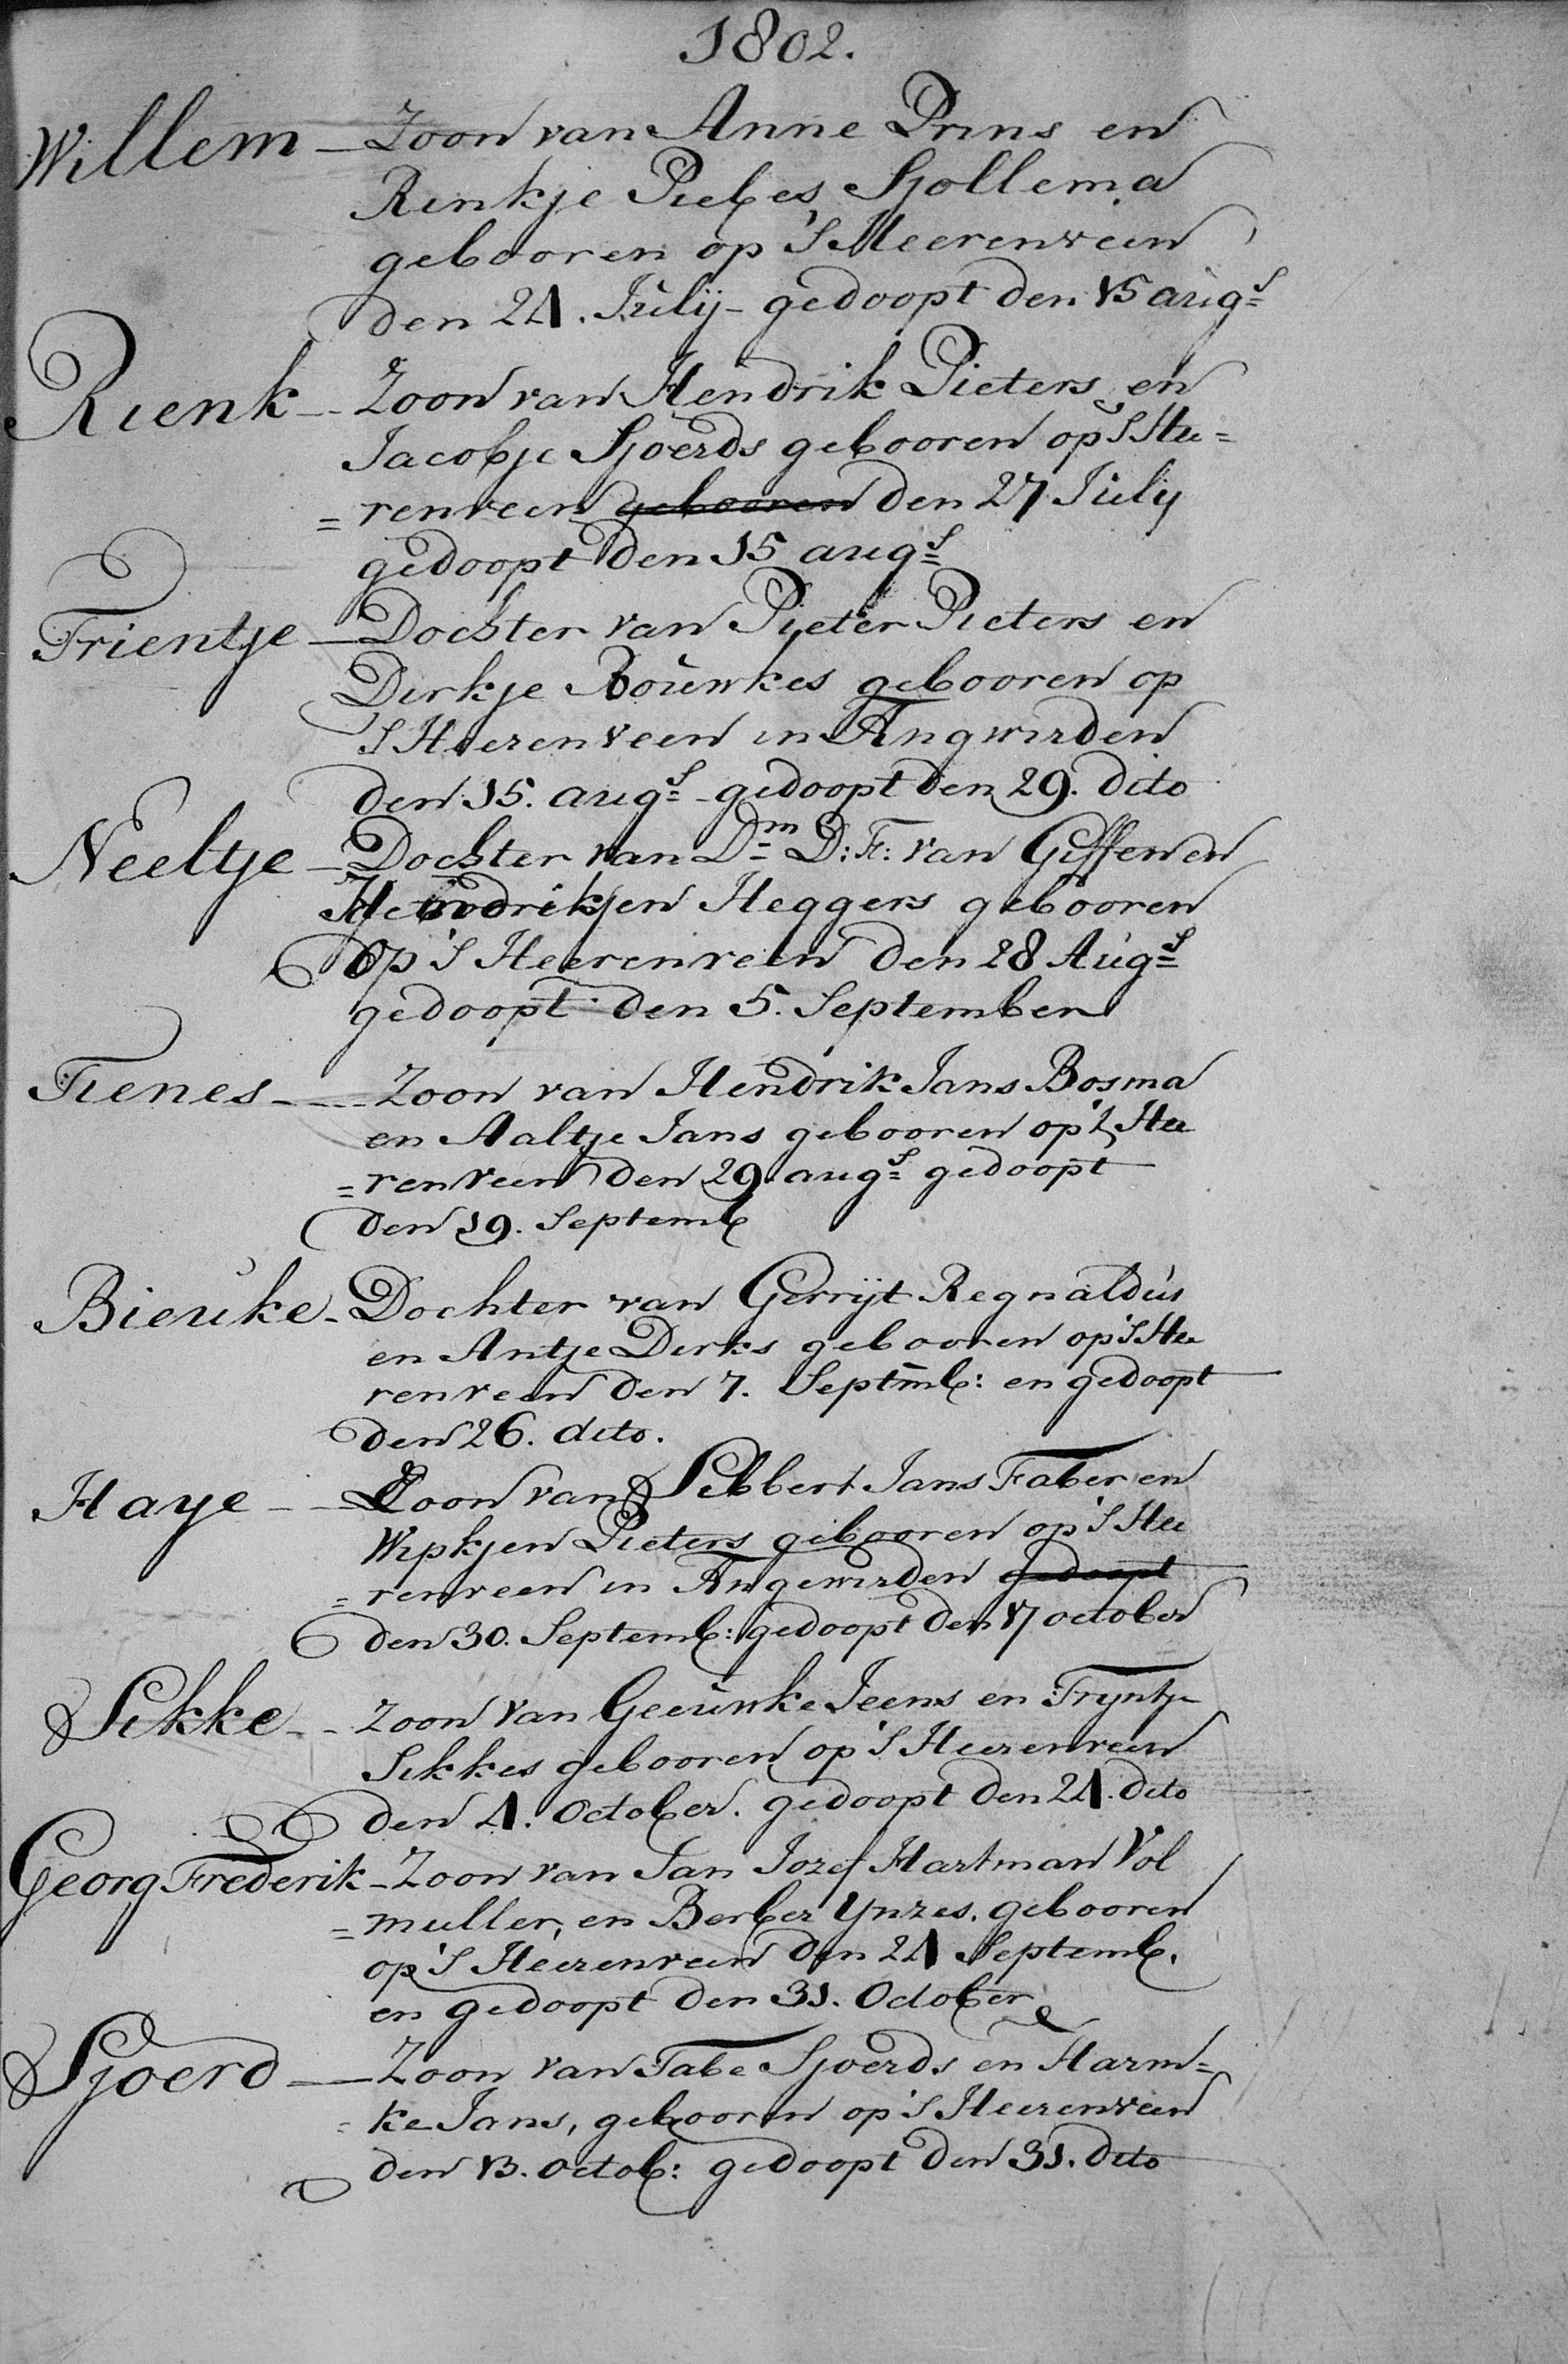 1802.
Willem - Zoon van Anne Prins en
Rinkje Piebes Sjollema
gebooren op 'S Heerenveen
den 24. Julij - gedoopt den 15 augs
Rienk - Zoon van Hendrik Pieters en
Jacobje Sjoerds gebooren op 'S Hee=
=renveen gebooren den 27 July
gedoopt den 15 augs
Trientje - Dochter van Pieter Pieters en
Dirkje Bouwkes gebooren op
'S Heerenveen in Ængwirden
den 15. augs - gedoopt den 29. dito
Neeltje - Dochter van Dm D: F: van Giffen en
Hendrikjen Heggers gebooren
op 'S Heerenveen den 28 Augs
gedoopt den 5. September
Tienes - Zoon van Hendrik Jans Bosma
en Aaltje Jans gebooren op 't Hee
=renveen den 29 augs gedoopt
den 19. Septemb
Bieuke - Dochter van Gerrijt Regnaldus
en Antje Derks gebooren op 'S Hee
renveen den 7. Septmb: en gedoopt
den 26. dito.
Haye - Zoon van Sibbert Jans Faber en
Wipkjen Pieters gebooren op 'S Hee
=renveen in Ængewirden gedoopt
den 30. Septemb: gedoopt den 17 october
Sikke - Zoon van Geeuwke Jeens en Tryntje
Sikkes gebooren op 'S Heerenveen
den 4. October. gedoopt den 24. dito
Georg Frederik - Zoon van Jan Jozef Hartman Vol
=muller, en Berber Ynzes. gebooren
op 'S Heerenveen den 24 Septemb.
en gedoopt den 31. October
Sjoerd - Zoon van Tabe Sjoerds en Harm=
=ke Jans, gebooren op 'S Heerenveen
den 13. Octob: gedoopt den 31. dito